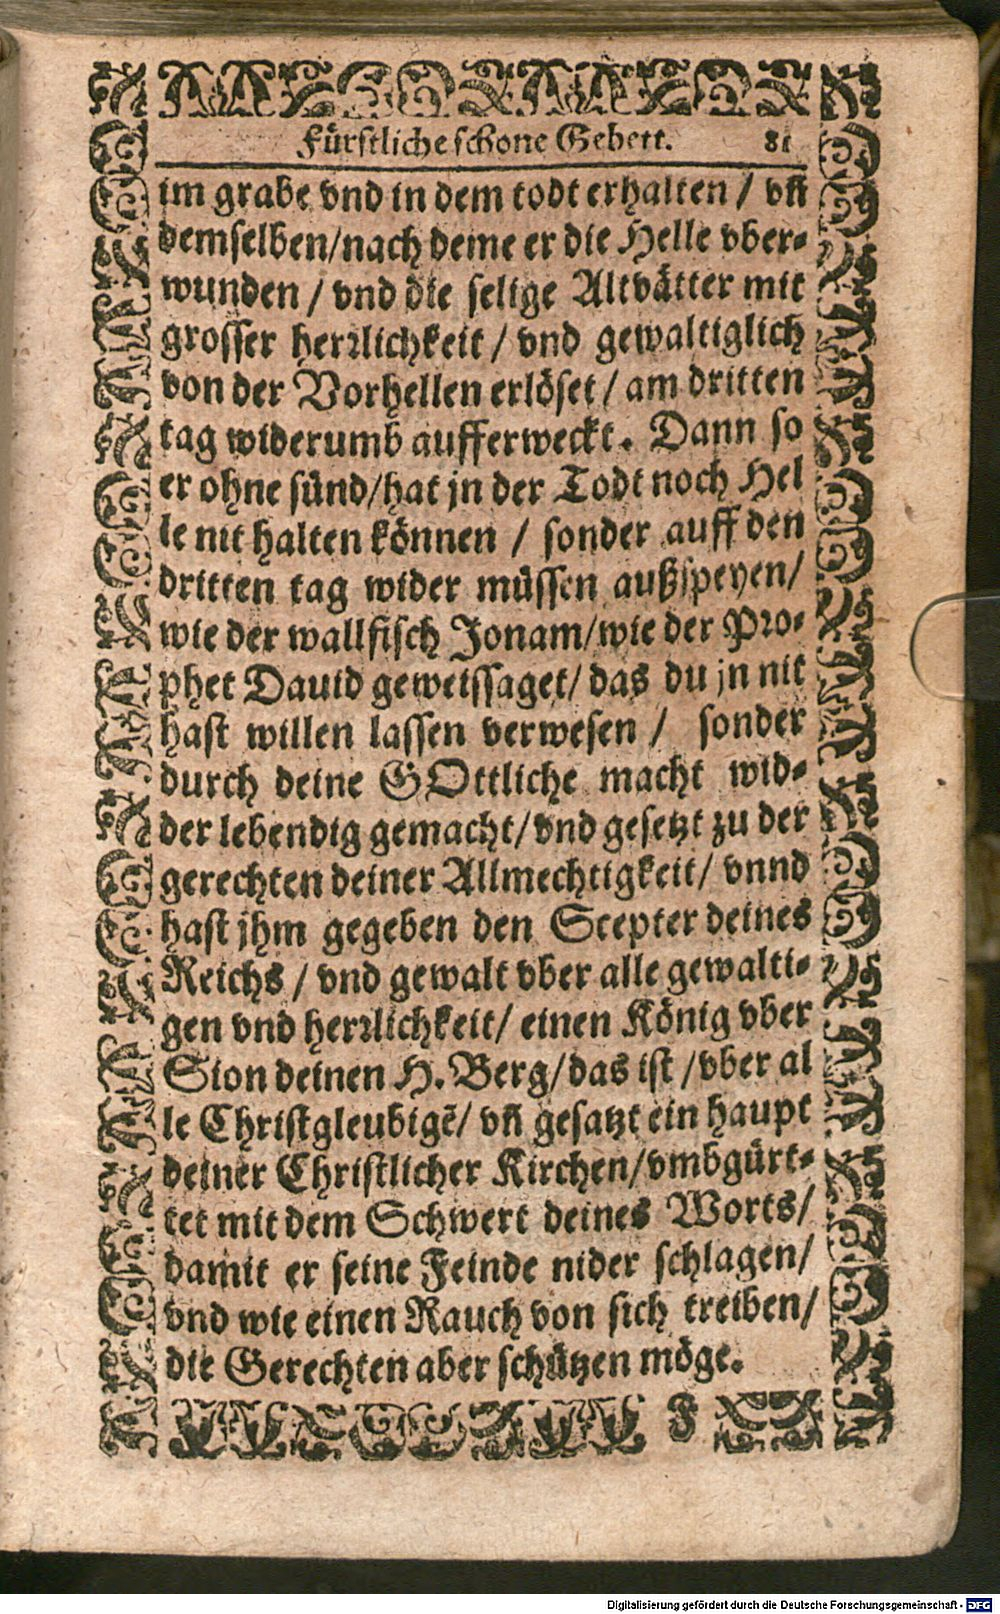 Fürstliche schone Gebett. 81
im grabe vnd in dem todt erhalten / vñ
demselben/nach deme er die Helle vber-
wunden / vnd die selige Altvätter mit
grosser herrlichkeit / vnd gewaltiglich
von der Vorhellen erlöset / am dritten
tag widerumb aufferweckt. Dann so
er ohne sünd/hat jn der Todt noch Hel
le nit halten können / sonder auff den
dritten tag wider müssen außspeyen/
wie der wallfisch Jonam/wie der Pro-
phet Dauid geweissaget/ das du jn nit
hast willen lassen verwesen / sonder
durch deine GOttliche macht wid-
der lebendig gemacht/vnd gesetzt zu der
gerechten deiner Allmechtigkeit/ vnnd
hast jhm gegeben den Scepter deines
Reichs / vnd gewalt vber alle gewalti-
gen vnd herrlichkeit/ einen König vber
Sion deinen H. Berg/das ist /vber al
le Christgleubigē/ vñ gesatzt ein haupt
deiner Christlicher Kirchen/vmbgürt-
tet mit dem Schwert deines Worts/
damit er seine Feinde nider schlagen/
vnd wie einen Rauch von sich treiben/
die Gerechten aber schützen möge.
F
Digitalisierung gefördert durch die Deutsche Forschungsgemeinschaft - DFG